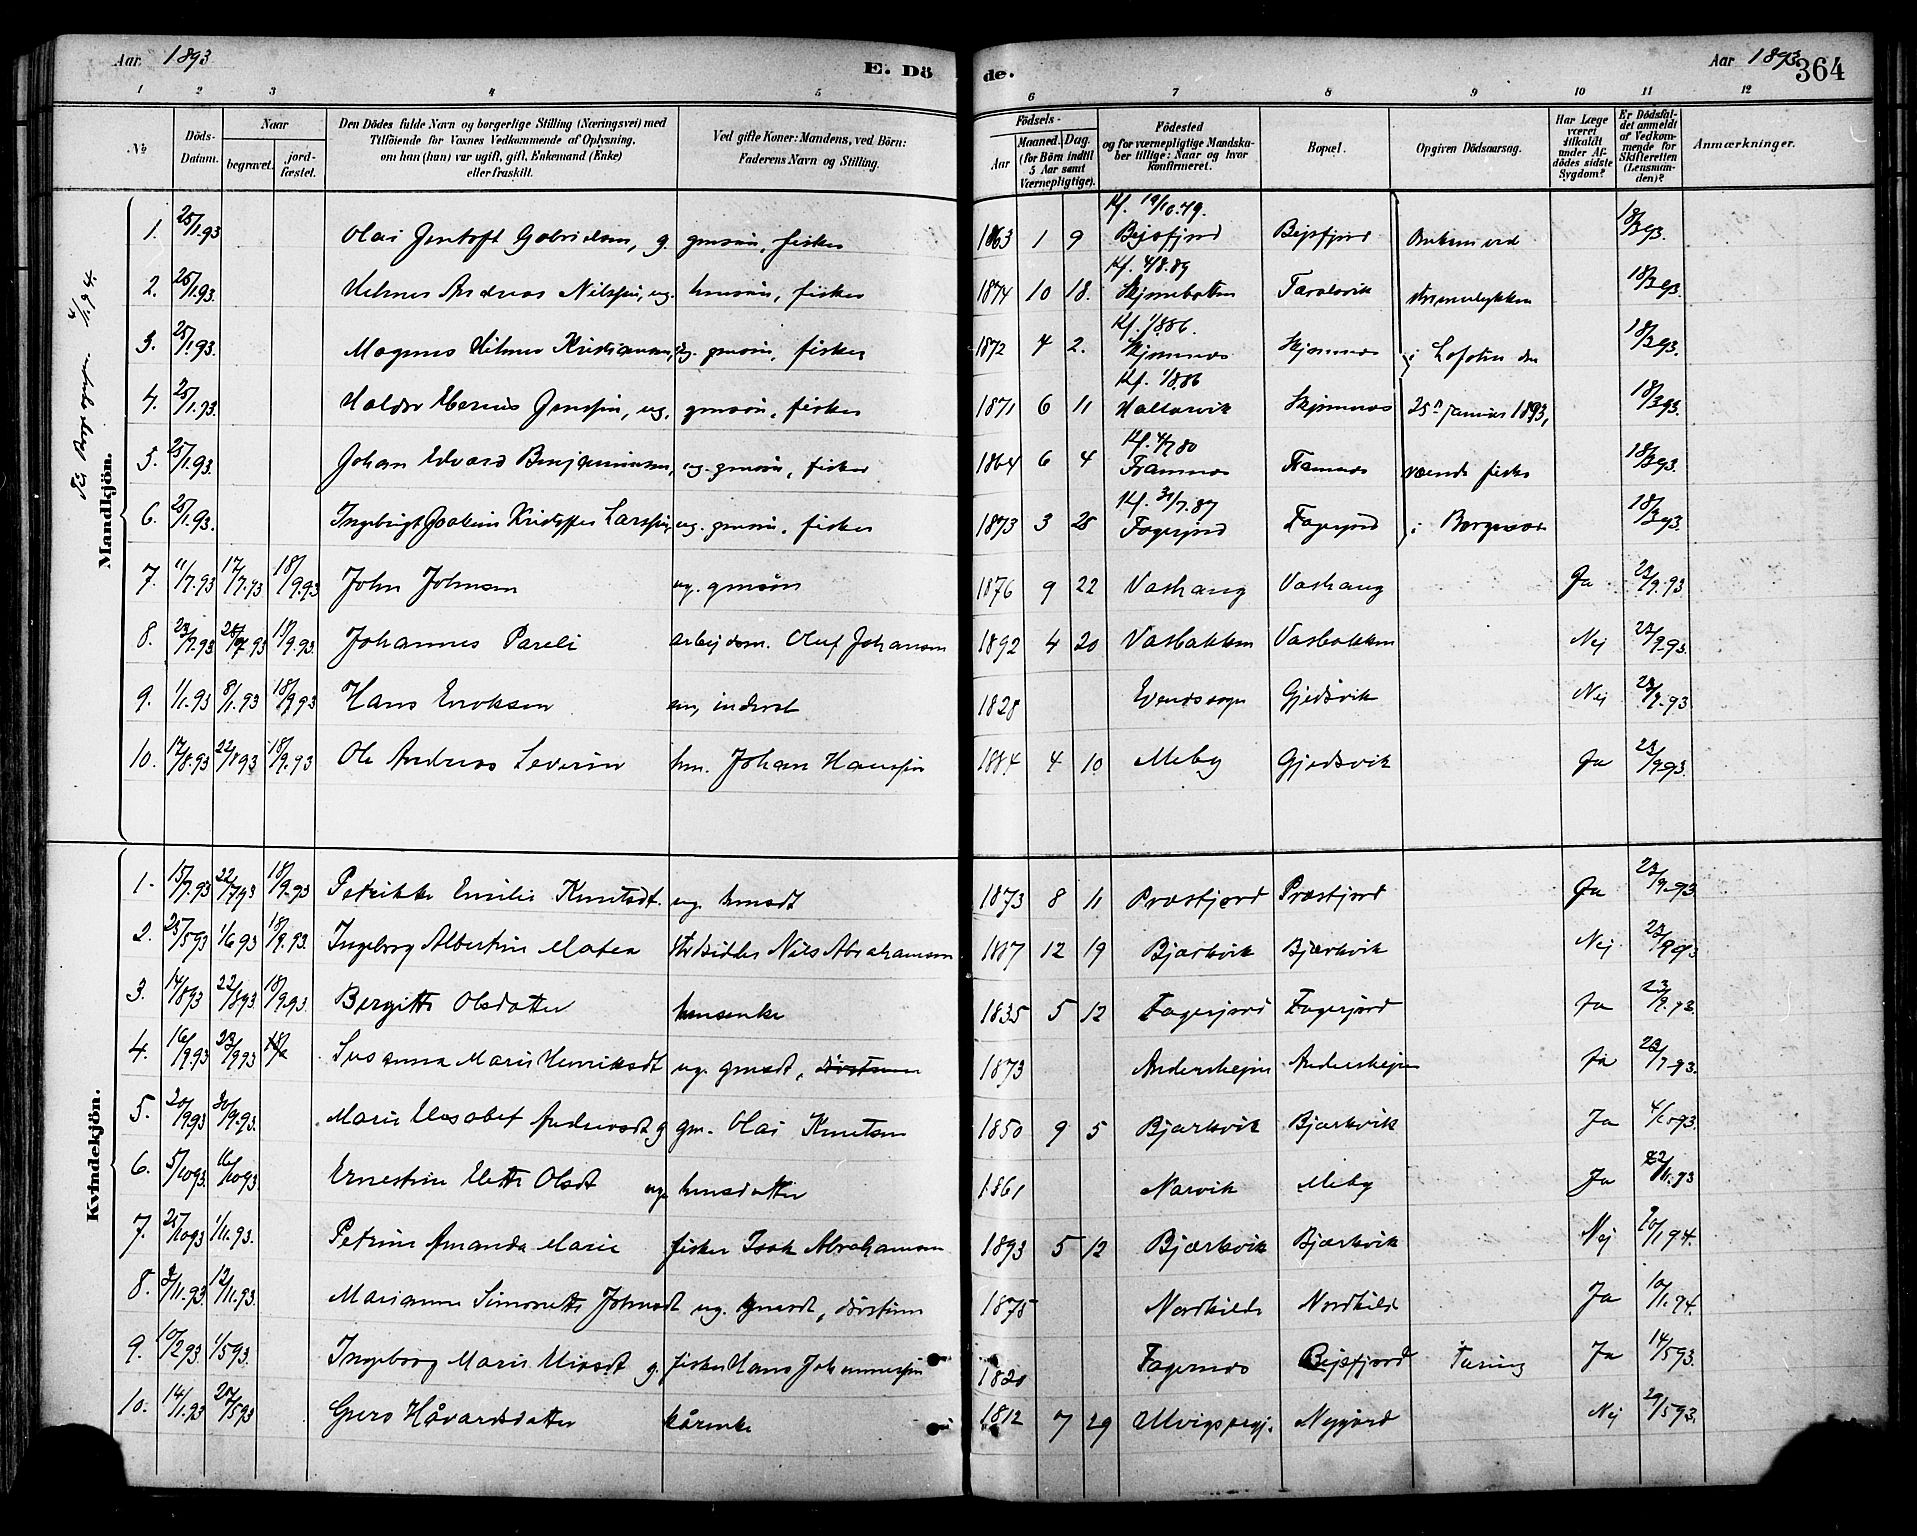 Aar. 1893 E. Dö de. Aar 1893. 364
1 2 3 4 5 6 7 8 9 10 11 12
No Döds-Datum. Naar begravet. jord-fæstet. Den Dödes fulde Navn og borgerlige Stilling (Næringsvei) med Tilföiende for Voxnes Vedkommende af Oplysning, om han (hun) var ugift, gift, Enkemand (Enke) eller fraskilt. Ved gifte Koner: Mandens, ved Börn: Faderens Navn og Stilling. Födsels- Aar Maaned. Dag. (for Börn indtil 5 Aar samt Værnepligtige). Födested og for værnepligtige Mandskaber tillige: Naar og hvor konfirmeret. Bopæl. Opgiven Dödsaarsag. Har Læge været tilkaldt under Afdödes sidste Sygdom? Er Dödsfaldet anmeldt af Vedkommende for Skifteretten (Lensmanden)? Anmærkninger.
Mandkjön.
1. 25/1.93 Olai Jentoft Gabrielsen, g. gmsøn, fisker 1863 1 9 Kf. 19/10.79. Beisfjord Beisfjord 18/3 93.
2. 25/1.93. Hilmer Andreas Nilssen, ug. hmsøn, fisker 1874 10 18. Kf. 4/8.89 Skjomebotten Taraldsvik 18/3 93.
3. 25/1.93. Magnus Hilmer Kristiansen, ug. gmsøn, fisker 1872 4 2. Kf. 1/8 86. Skjomnes Skjomnes i Lofoten den 18/3 93.
4. 25/1.93. Haldor Marius Jenssen, ug. gmsøn, fisker 1871 6 11 Kf. 1/8 86 Hallarvik Skjomnes 25de januar 1893, 18/3 93.
5. 25/1.93. Johan Edvard Benjaminsen, ug. gmsøn, fisker 1864 6 4 Kf. 4/7 80 Framnes Framnes 18/3 93.
6. 25/1.93. Ingebrigt Joakim Kristoffer Larssen, ug. gmsøn, fisker 1873 3 28 Kf. 31/7.87 Fagerjord Fagerjord i 18/3 93.
7. 11/7.93 17/7.93 18/9.93 John Johnsen ug. gmsøn 1876 9 22 Vashaug Vashaug Ja 23/9.93
8. 23/7.93 28/7 93 18/9.93. Johannes Pareli arbejdsm. Oluf Johansen 1892 4 20 Vasbakken Vasbakken Nej 23/9.93.
9. 1/1.93 8/1.93 18/9 93 Hans Eriksen em, inderst 1828 Evenes sogn Gjedsvik Nej 23/9.93
10. 17/8.93 22/8 93 18/9.93 Ole Andreas Severin hm. Johan Hanssen 1884 4 10 Meby Gjedsvik Ja 23/9 93.
Kvindekjön.
1. 15/7.93 22/7 93 18/9.93 Petrikke Emilie Knutsdt. ug. hmsdt 1873 8 11 Præstjord Præstjord Ja 23/9.93
2. 25/5 93 1/6 93 18/9.93. Ingeborg Albertine Matea Nils Abrahamsen 1887 12 19 Bjærkvik Bjærkvik Nej 23/9 93
3. 14/8 93 22/8 93 18/9.93 Bergitte Olsdatter hmsenke 1835 5 12 Fagerjord Fagerjord Ja 23/9.93
4. 16/9.93 23/9 93 Susanna Marie Henriksdt ug. gmsdt, 1873 Ja 23/9.93.
5. 20/9 93 30/9.93. Marie Elisabet Andreasdt g gm. Olai Knutsen 1850 9 5 Bjærkvik Bjærkvik Ja 4/10 93.
6. 5/10 93. 16/10 93. Ernestine Mette Olsdt ug. hmsdatter 1861 Narvik Meby Ja 22/11.93
7. 25/10 93 1/11.93. Petrine Amanda Marie fisker Isak Abrahamsen 1893 5 12 Bjærkvik Bjærkvik Nej 20/1 94.
8. 3/11.93. 12/11.93. Marianne Simonette Johnsdt ug. gmsdt, 1875 Nordkilde Nordkilde Ja 10/1.94.
9. 10/2 93. 1/5 93. Ingeborg Marie g. fisker Hans Johannessen 1820 Fagernes Beisfjord Tæring Ja 14/5 93.
10. 14/1.93 20/5 93 Guro Håvardsdatter kårenke 1812 7 29 Nygjord Nej 20/5 93.